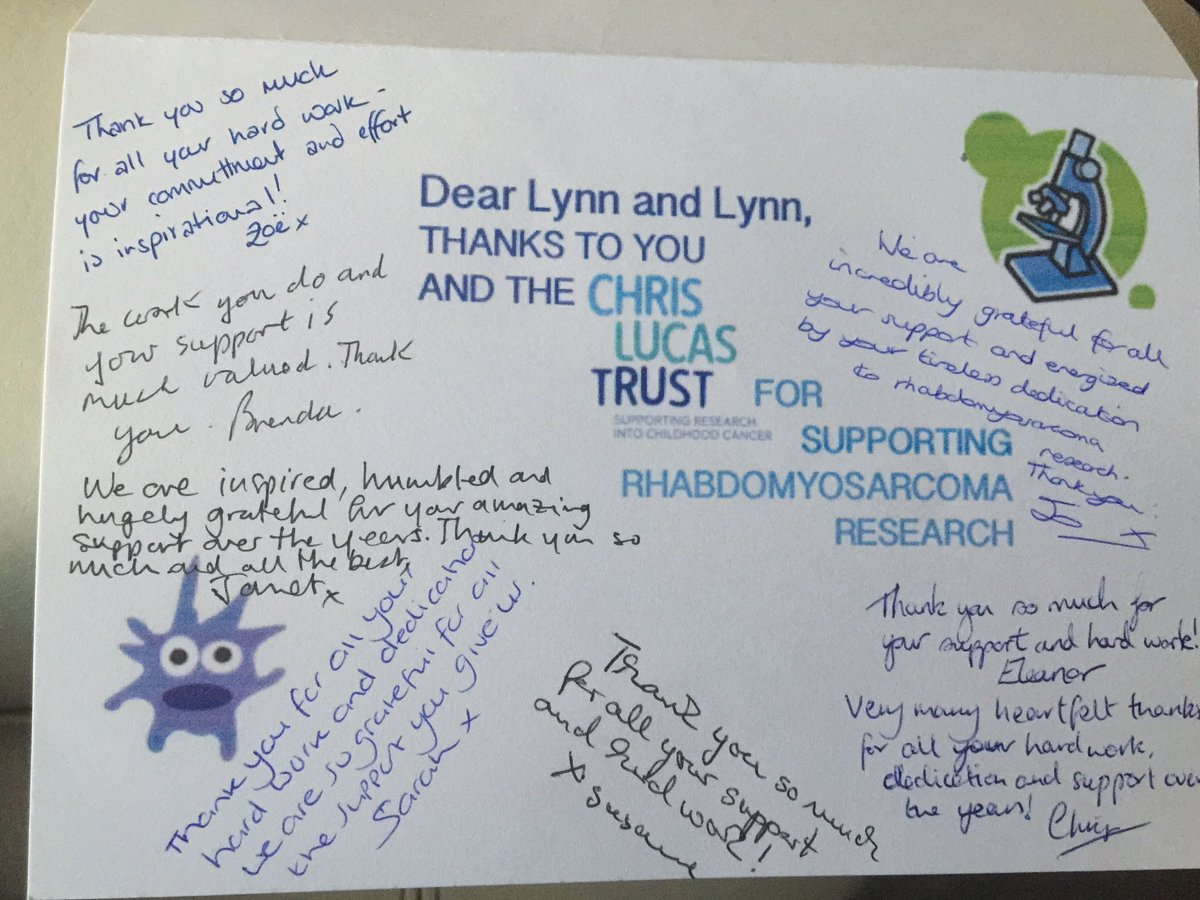 Thank you so much
for all your hard work -
your committment and effort
is inspirational!
Zoë x
The work you do and
your support is
much valued. Thank
you. Brenda.
We are inspired, humbled and
hugely grateful for your amazing
support over the years. Thank you so
much and all the best,
Janet x
Dear Lynn and Lynn,
THANKS TO YOU
AND THE CHRIS
LUCAS
TRUST FOR
SUPPORTING RESEARCH
INTO CHILDHOOD CANCER
SUPPORTING
RHABDOMYOSARCOMA
RESEARCH
We are
incredibly grateful for all
your support and energized
by your tireless dedication
to rhabdomyosarcoma
research.
Thank you.
Jo x
Thank you for all your
hard work and dedication
We are so grateful for all
the support you give us.
Sarah x
Thank you so much
for all your support
and hard work!
x Susanne
Thank you so much for
your support and hard work!
Eleanor
Very many heartfelt thanks
for all your hard work,
dedication and support over
the years!
Chris